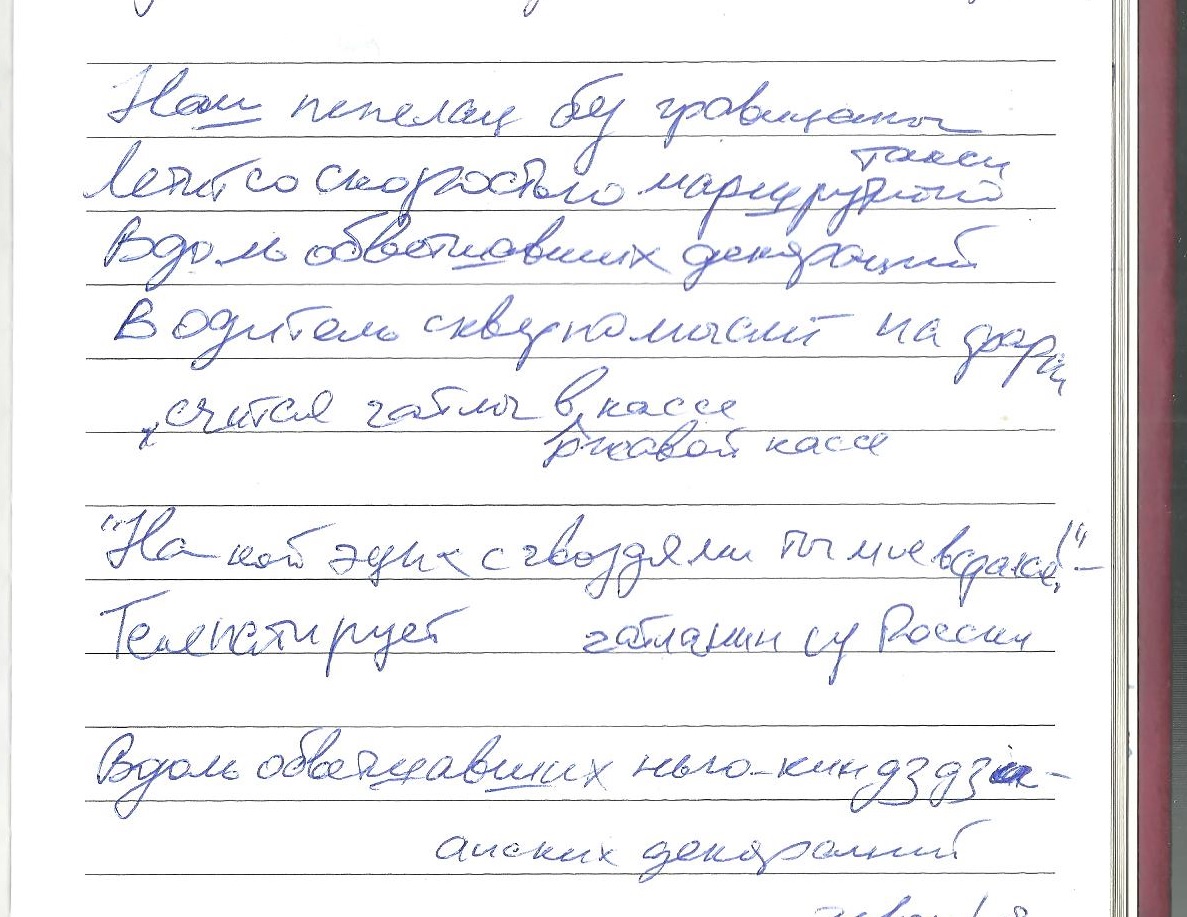 Наш пепелац бу гравицапы
Летит со скоростью маршрутной
такси
Вдоль обветшавших декораций
Водитель сквернословит на
считая чатлы в кассе
ржавой кассе
"На кой эцих с гвоздями ты мне всдался!" -
Телепатирует чатланин су России
Вдоль обветшавших нью-киндздза-
анских декораций